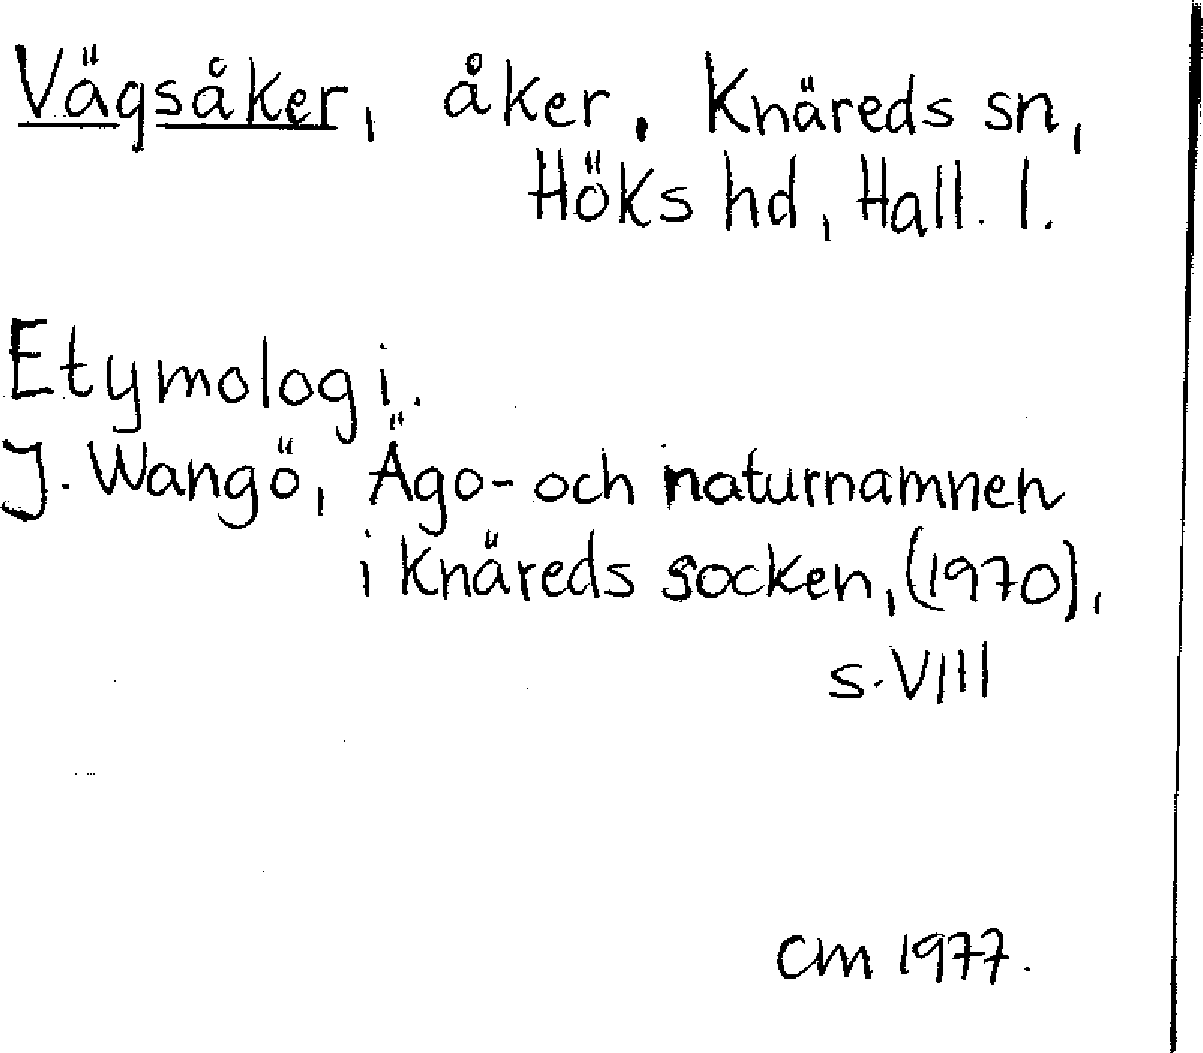 Vägsåker, åker, Knäreds sn,
Höks hd, Hall. l.
Etymologi.
J. Wangö, Ägo- och naturnamnen
i Knäreds socken, (1970),
s. VIII
CM 1977.